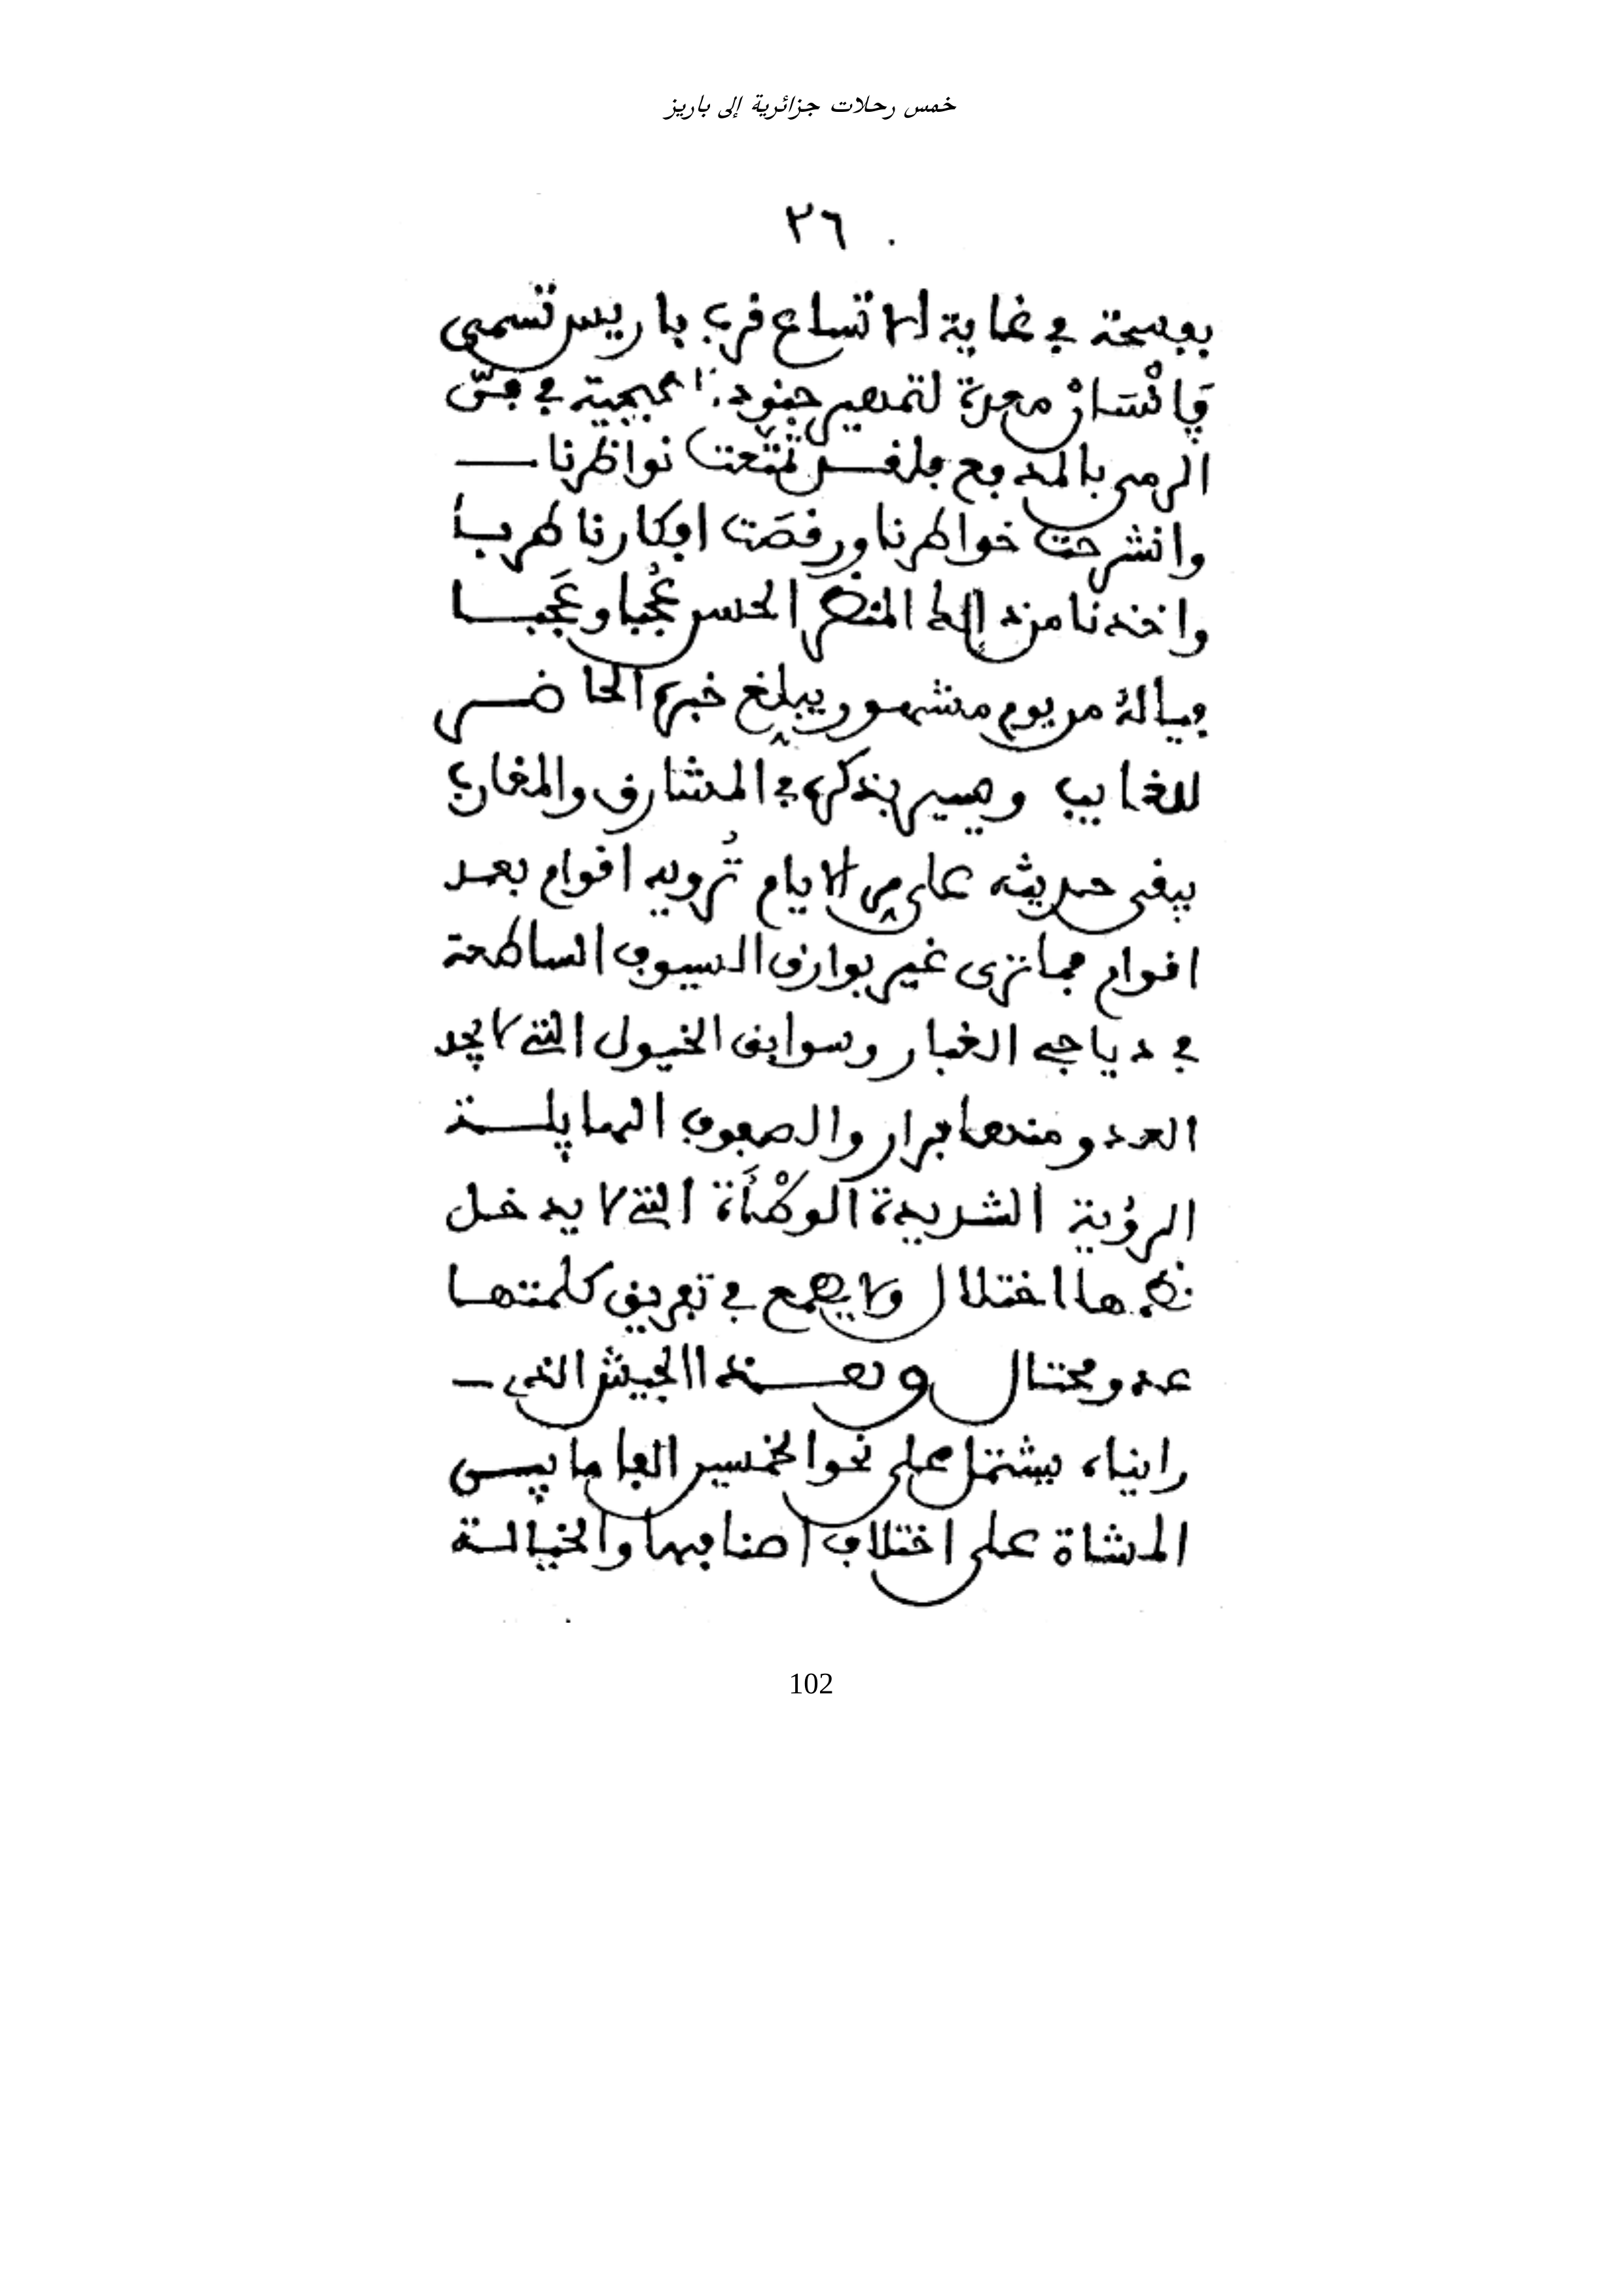 خمس رحلات جزائرية إلى باريز
٢٦
بفسحة في غاية الاتساع قرب باريس تسمى
ڢانْسَانْ معدة لتمهير جنود الطبجية في فنّ
الرمي بالمدفع فلقد تمتّعت نواظرنا
وانشرحت خواطرنا ورقصَت افكارنا طربا
واخذنا من ذلك المنظر الحسن عُجُبا وعَجَبا
فياله من يوم مشهور يبلغ خبره الحاضر
للغايب ويسير بذكره في المشارق والمغارب
يبقى حديثه على مر الايام تُرويه اقوام بعد
اقوام فما ترى غير بوارق السيوف الساطعة
في دياجي الغبار وسوابق الخيول التي لا يجد
العدو منها فرار والصفوف الهايلة
الرؤية الشديدة الوطْأَة التي لا يدخل
نظمها اختلال ولا يطمع في تفريق كلمتها
عدو محتال وهذا الجيش الذي
رايناه يشتمل على نحو الخمسين الفا ما بين
المشاة على اختلاف اصنافها والخيالة
102